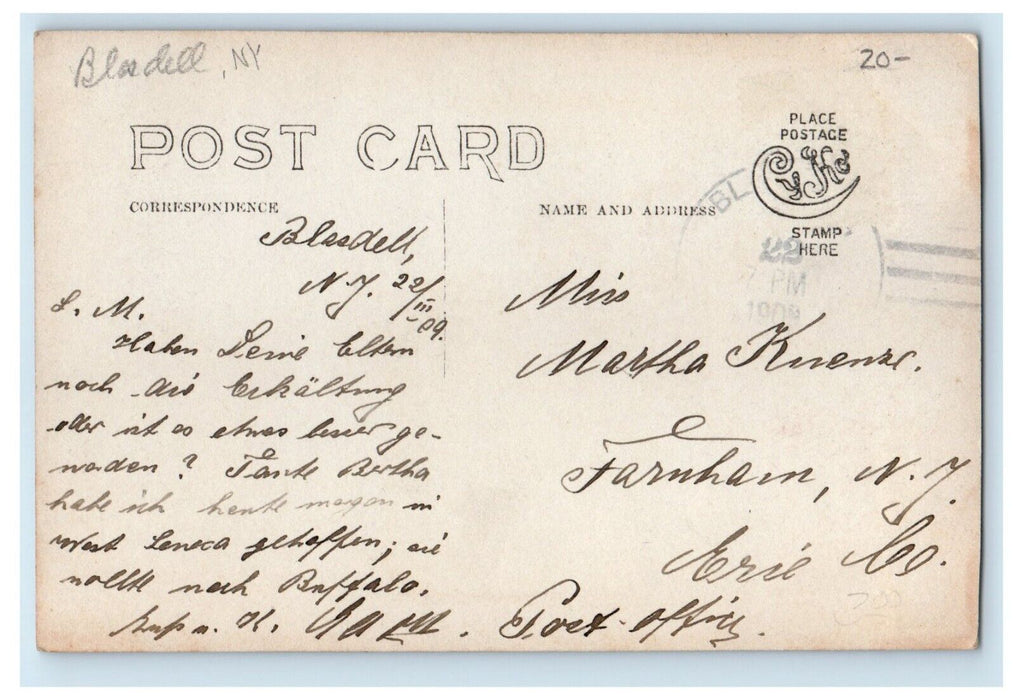 Blasdell, NY
20-
POST CARD
PLACE
POSTAGE
CyKo
STAMP
HERE
CORRESPONDENCE
NAME AND ADDRESS
BL
22
7 PM
1909
Blasdell,
N.Y. 22/III-09.
L. M.
Haben Deine Eltern
noch die Erkältung
oder ist es etwas besser ge-
worden? Tante Bertha
habe ich heute morgen in
West Seneca getroffen; sie
wollte nach Buffalo.
Gruß u. K.
Miss
Martha Kuenze.
Farnham, N.Y.
Erie Co.
Post-office.